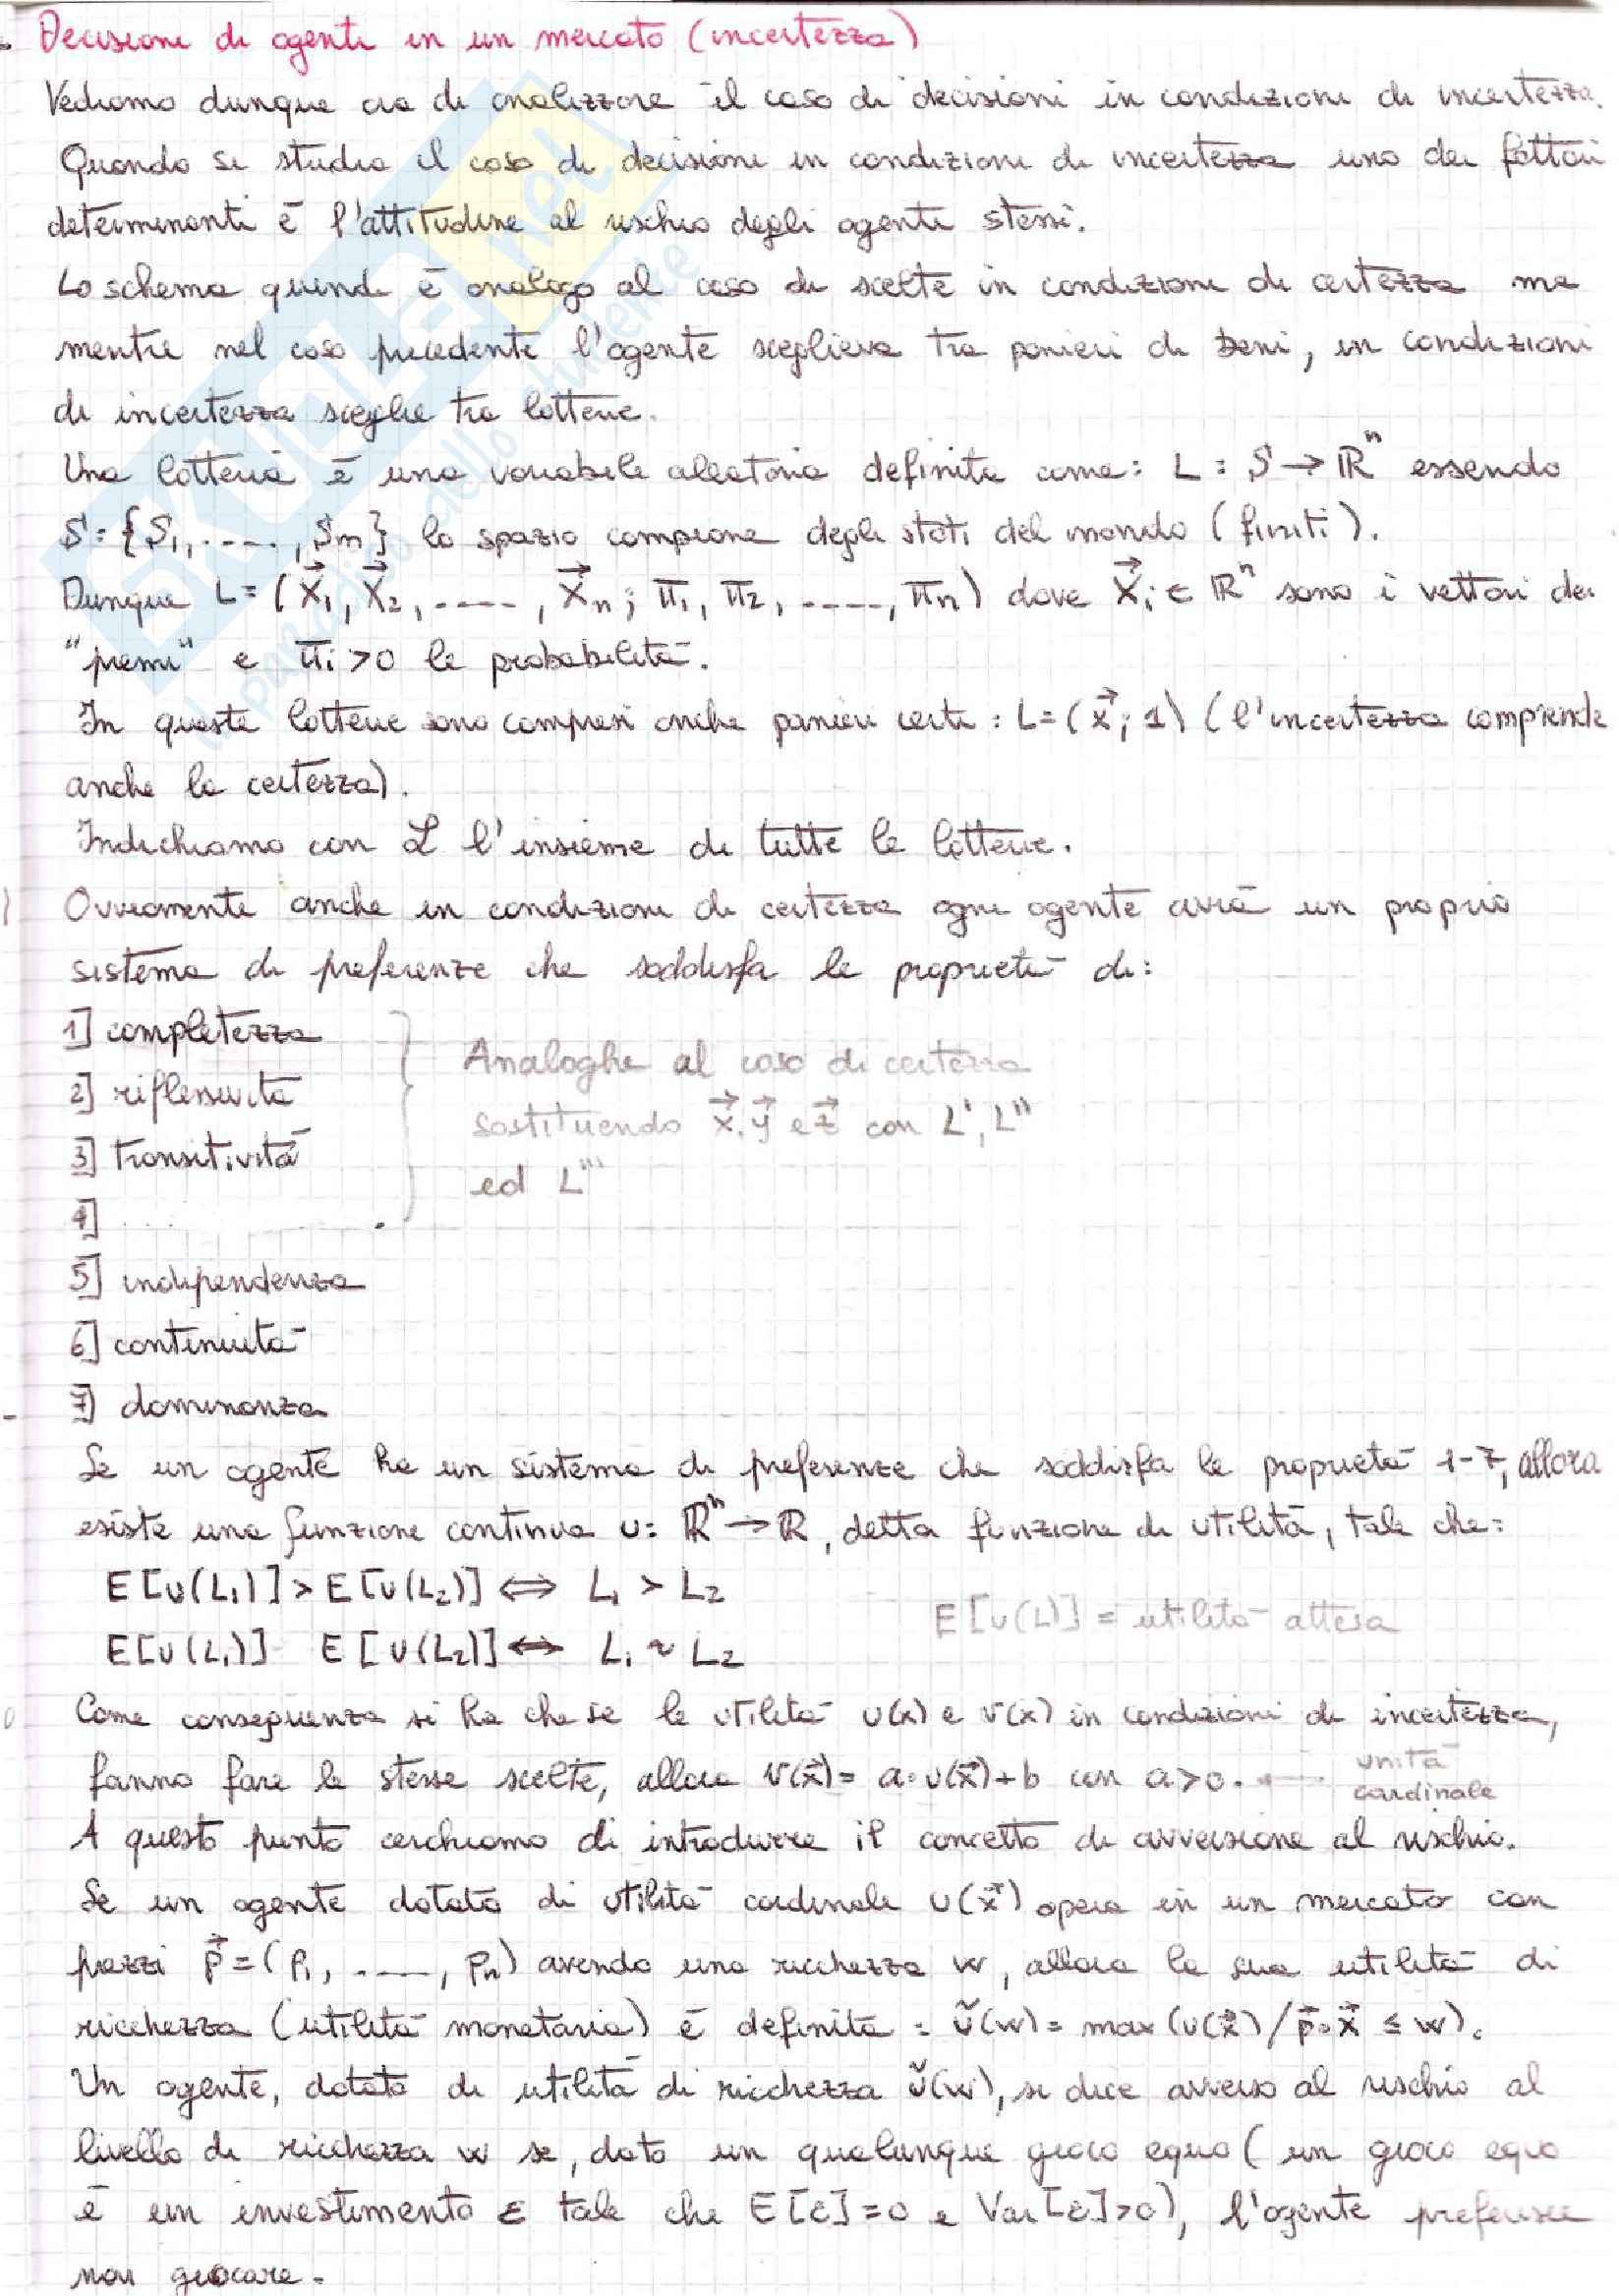 Decisioni di agenti in un mercato (incertezza)
Vediamo dunque ora di analizzare il caso di decisioni in condizioni di incertezza.
Quando si studia il caso di decisioni in condizioni di incertezza uno dei fattori
determinanti è l'attitudine al rischio degli agenti stessi.
Lo schema quindi è analogo al caso di scelte in condizioni di certezza ma
mentre nel caso precedente l'agente sceglieva tra panieri di beni, in condizioni
di incertezza sceglie tra lotterie.
Una lotteria è una variabile aleatoria definita come: L : S → ℝⁿ essendo
S = {S₁, ....., Sm} lo spazio campione degli stati del mondo (finiti).
Dunque L = (x⃗₁, x⃗₂, ....., x⃗n ; π₁, π₂, ....., πn) dove x⃗i ∈ ℝⁿ sono i vettori dei
"premi" e πi > 0 le probabilità.
In queste lotterie sono compresi anche panieri certi : L = (x⃗ ; 1) (l'incertezza comprende
anche la certezza).
Indichiamo con ℒ l'insieme di tutte le lotterie.
Ovviamente anche in condizioni di certezza ogni agente avrà un proprio
sistema di preferenze che soddisfa le proprietà di:
1] completezza
2] riflessività
3] transitività
4]
Analoghe al caso di certezza
sostituendo x⃗, y⃗ e z⃗ con L', L''
ed L'''
5] indipendenza
6] continuità
7] dominanza
Se un agente ha un sistema di preferenze che soddisfa le proprietà 1-7, allora
esiste una funzione continua u: ℝⁿ → ℝ, detta funzione di utilità, tale che:
E[u(L₁)] > E[u(L₂)] ⟺ L₁ > L₂
E[u(L)] = utilità attesa
E[u(L₁)] E[u(L₂)] ⟺ L₁ ~ L₂
Come conseguenza si ha che se le utilità u(x) e v(x) in condizioni di incertezza,
fanno fare le stesse scelte, allora v(x⃗) = a·u(x⃗)+b con a>0. ← unità
cardinale
A questo punto cerchiamo di introdurre il concetto di avversione al rischio.
Se un agente dotato di utilità cardinale u(x⃗) opera in un mercato con
prezzi p⃗ = (p₁, ....., pn) avendo una ricchezza w, allora la sua utilità di
ricchezza (utilità monetaria) è definita : ǔ(w) = max (u(x⃗) / p⃗·x⃗ ≤ w).
Un agente, dotato di utilità di ricchezza ǔ(w), si dice avverso al rischio al
livello di ricchezza w se, dato un qualunque gioco equo (un gioco equo
è un investimento ε tale che E[ε]=0 e Var[ε]>0), l'agente preferisce
non giocare.
SKUOLA.net
Il paradiso dello studente